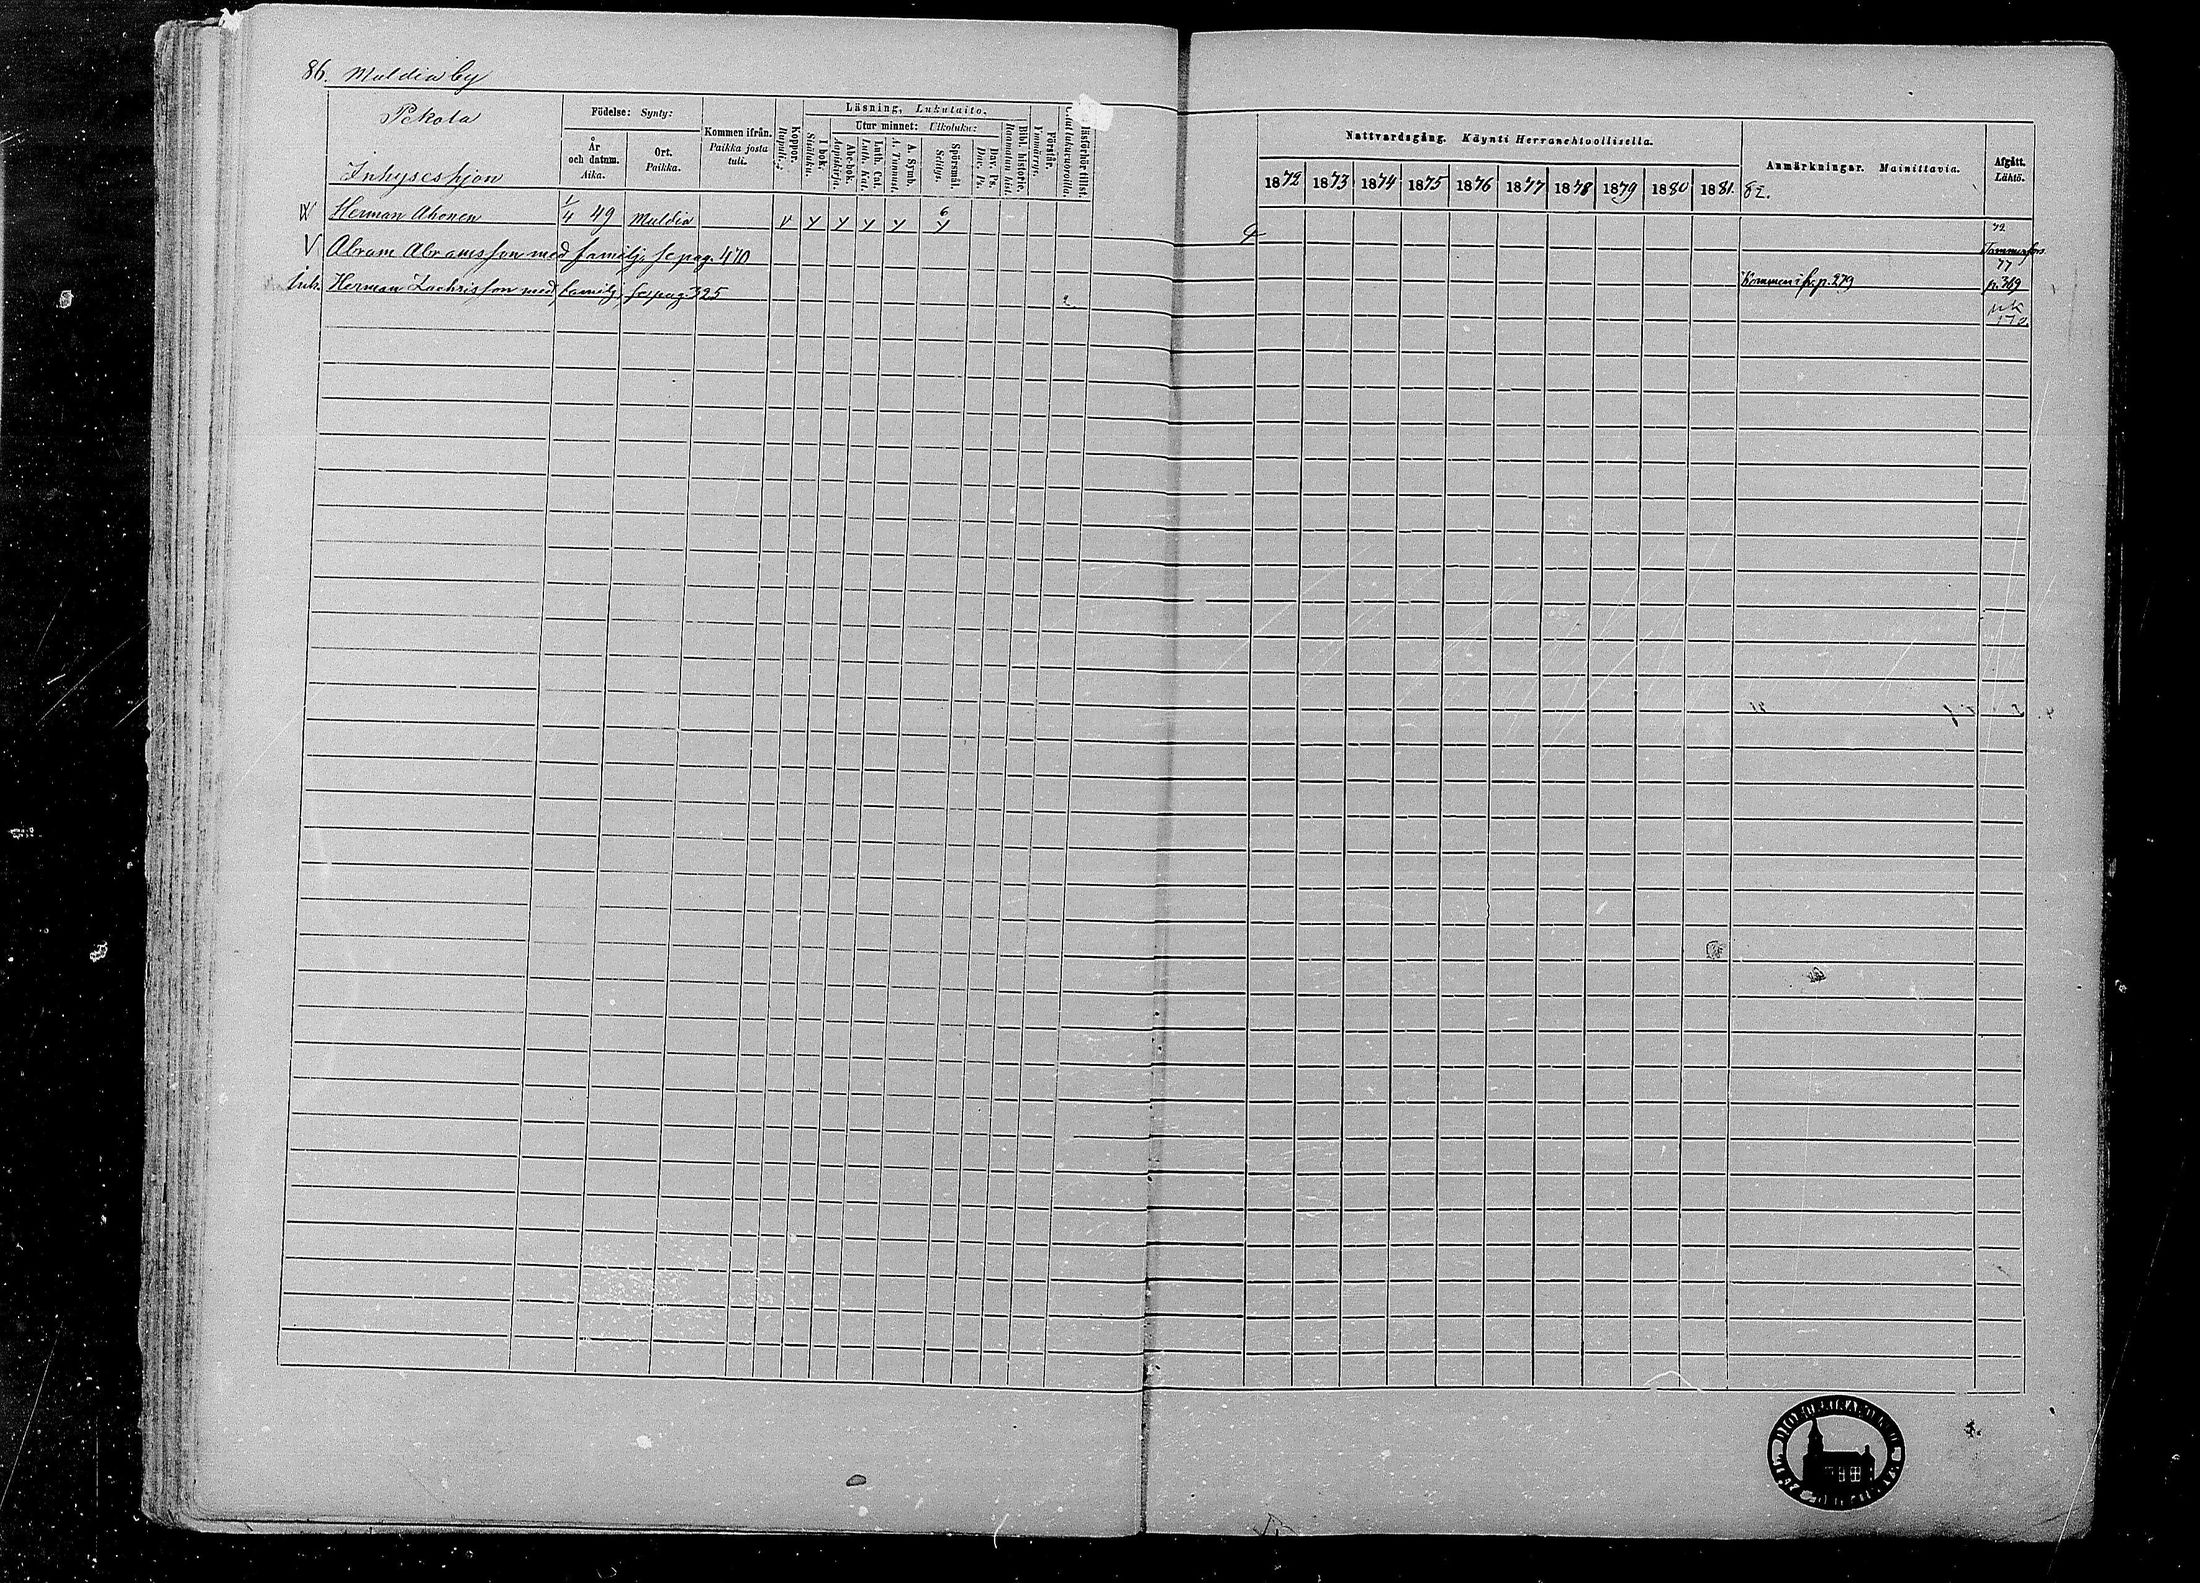 86. Muldia by
Pekola
Inhyseshjon
Födelse: Synty:
År och datum. Aika.
Ort. Paikka.
Kommen ifrån. Paikka josta tuli.
Koppor. Rupuli.
Läsning, Lukutaito.
I bok. Sisäluku.
Utur minnet: Ulkoluku:
Abc-bok. Aapiskirja.
Luth. Cat. Luth. Kat.
A. Symb. A. Tunnust.
Spörsmål. Selitys.
Dav. Ps. Dav. Ps.
Bibl. historie. Raamatun hist.
Förstår. Ymmärrys.
Läsförhör tillst.
Nattvardsgång. Käynti Herranehtoollisella.
1872 1873 1874 1875 1876 1877 1878 1879 1880 1881.
Anmärkningar. Mainittavia.
82.
Afgått. Lähtö.
Herman Ahonen 1/4 49 Muldia v y y y y 6 y 72
V Abram Abramsson med familj, se pag. 470 Tammerfors 77
Inh. Herman Zachrisson med familj, se pag. 325 2 Kommen i fr. p. 279 p. 369